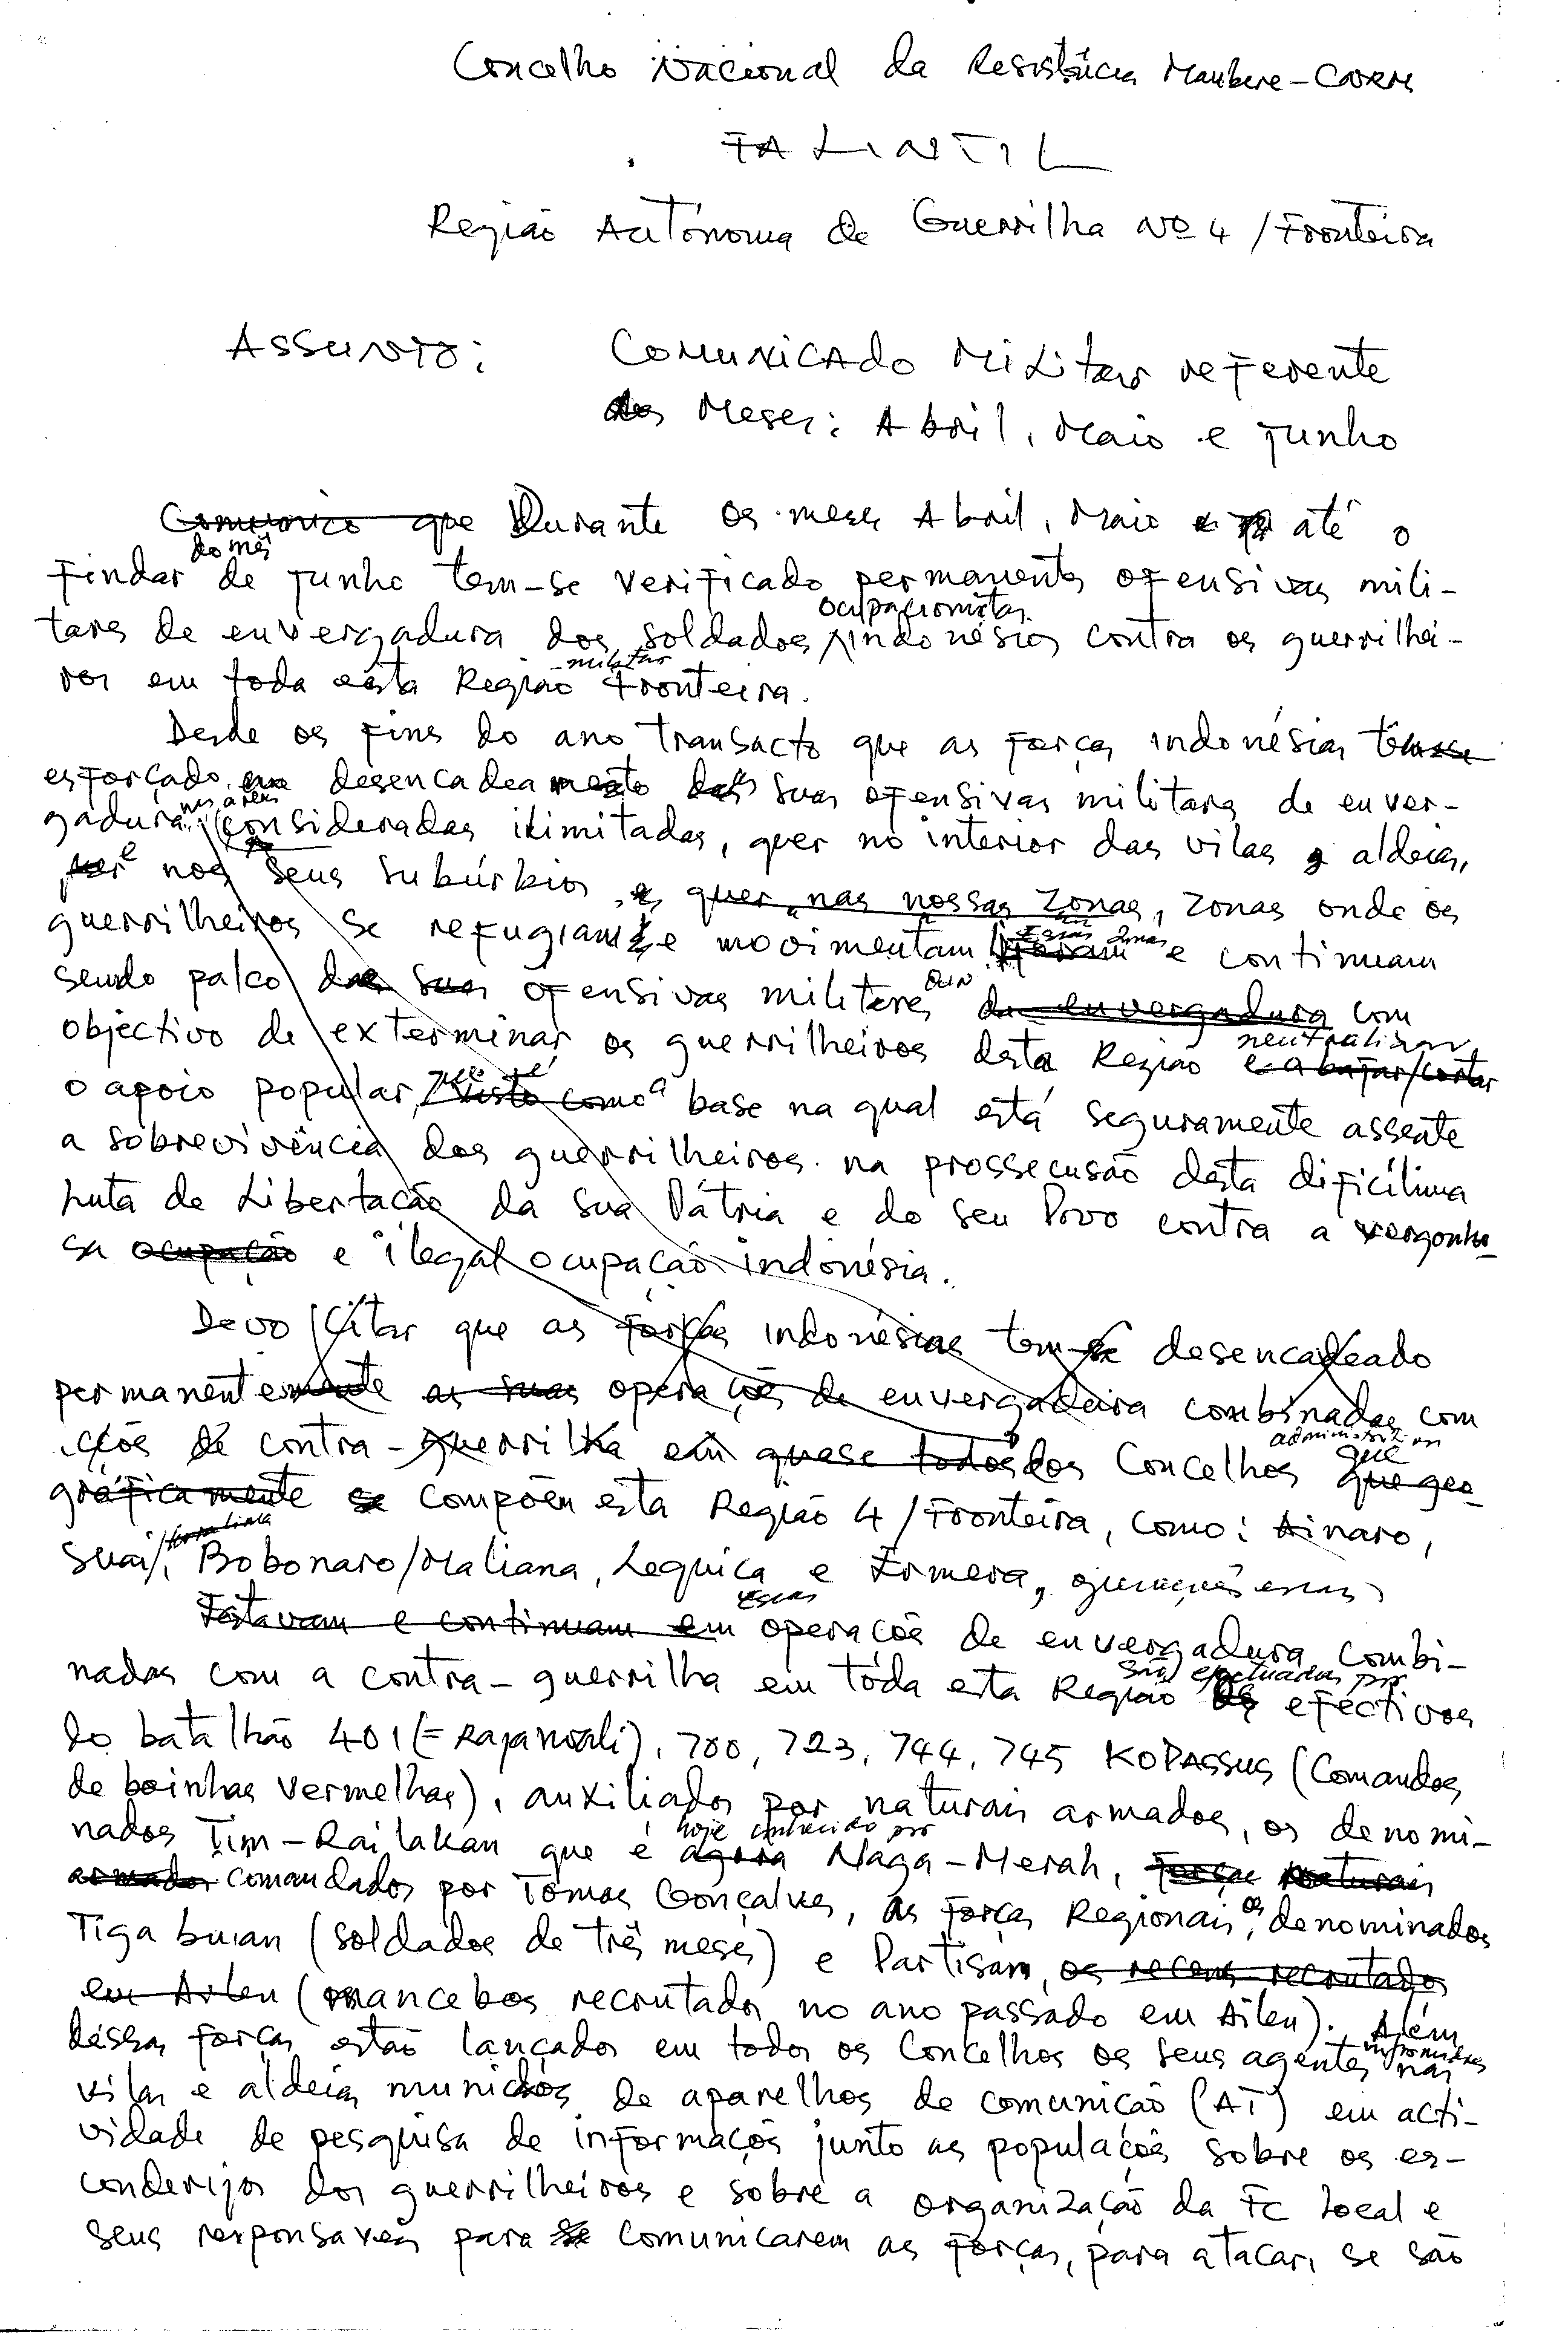 Concelho Nacional da Resistência Maubere-CNRM
FALINTIL
Região Autónoma de Guerrilha Nº 4 / Fronteira
Assunto: Comunicado Militar referente
aos Meses: Abril, Maio e Junho
Comunico que Durante os meses Abril, Maio e até o
findar do mês de Junho tem-se verificado permanentes ofensivas mili-
tares de envergadura dos soldados ocupacionistas indonésios contra os guerrilhei-
ros em toda esta Região militar Fronteira.
Desde os fins do ano transacto que as forças indonésias têm-se
esforçado no desencadeamento das suas ofensivas militares de enver-
gadura nas áreas consideradas ilimitadas, quer no interior das vilas e aldeias,
e nos seus subúrbios, e quer nas nossas zonas, zonas onde os
guerrilheiros se refugiam e movimentam. Essas zonas foram e continuam
sendo palco das suas ofensivas militares de envergadura com
objectivo de exterminar os guerrilheiros desta Região neutralizar
o apoio popular, visto como a base na qual está seguramente assente
a sobrevivência dos guerrilheiros na prossecusão desta dificílima
Luta de Libertação da sua Pátria e do seu Povo contra a vergonho-
sa ocupação e ilegal ocupação indonésia.
Devo citar que as forças indonésias tem-se desencadeado
permanentemente as suas operações de envergadura combinadas com
acções de contra-guerrilha em quase todos dos Concelhos administrativos que que geo-
gráficamente se compõem esta Região 4 / Fronteira, como: Ainaro,
Suai, Bobonaro/Maliana, Lequiça e Ermera,
Estavam e continuam em essas operacões de envergadura combi-
nadas com a contra-guerrilha em toda esta Região são efectuadas por os efectivos
do batalhão 401 (= Rajawali), 700, 723, 744, 745 KOPASSUS (Comandos
de boinhas vermelhas), auxiliados por naturais armados, os denomi-
nados Tim-Railakan que é agora hoje conhecido por Naga-Merah, forças naturais
armados comandados por Tomas Gonçalves, as forças Regionais, os denominados
Tiga bulan (soldados de três meses) e Partisan, os recens recrutados
em Aileu (mancebos recrutados no ano passado em Aileu). Além
dessas forças estão lançados em todos os Concelhos os seus agentes informadores nas
vilas e aldeias munidos de aparelhos de comunicão (AT) em acti-
vidade de pesquisa de informaços junto as populacões sobre os es-
conderijos dos guerrilheiros e sobre a organização da FC local e
seus responsaveis para se comunicarem as forças, para atacar, se são